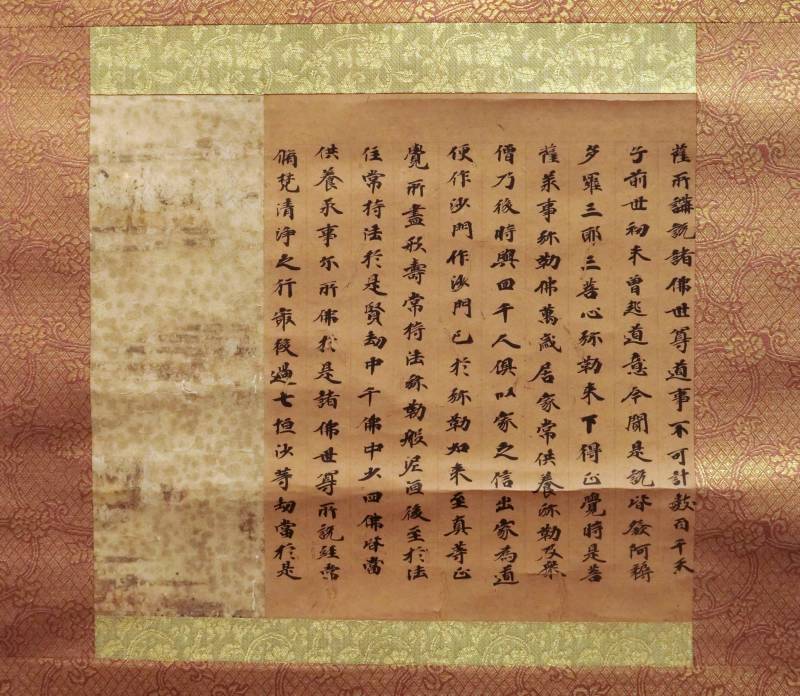 薩所講說諸佛世尊道事不可計數百千天
于前世初未曾起道意今聞是說皆發阿耨
多羅三耶三菩心弥勒来下得正覺時是菩
薩承事弥勒佛萬歲居家常供養弥勒及衆
僧乃後時與四千人俱以家之信出家為道
便作沙門作沙門已於弥勒如来至真等正
覺所盡形壽常持法弥勒般泥洹後至於法
住常持法於是賢劫中千佛中少四佛皆當
供養承事尔所佛於是諸佛世尊所說經常
脩梵清淨之行最後過七恒沙等劫當於是